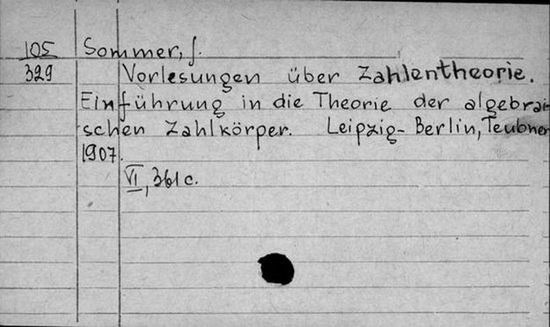 105 Sommer, J.
329 Vorlesungen über Zahlentheorie.
Einführung in die Theorie der algebrai-
schen Zahlkörper. Leipzig-Berlin, Teubner
1907.
VI, 361 c.